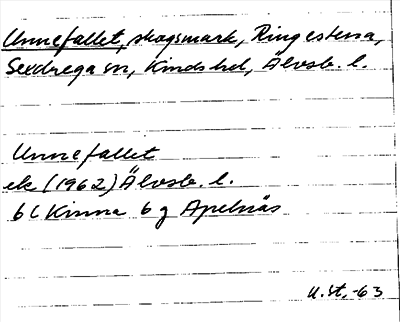 Unnefallet, skogsmark, Ringestena,
Sexdrega sn, Kinds hd, Älvsb. l.
Unnefallet
ek (1962) Älvsb. l.
6C Kinna 6 g Apelnäs
U.St. -63